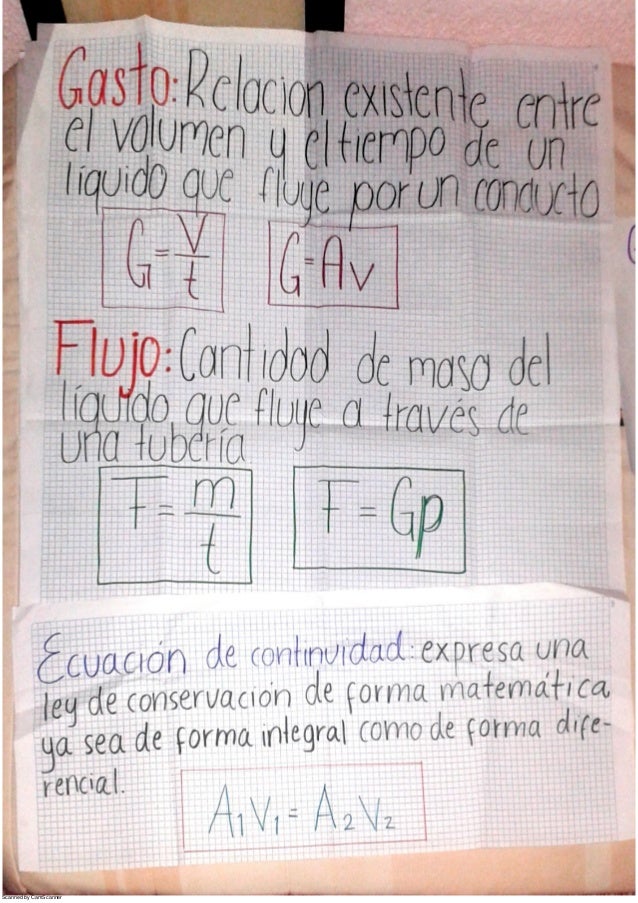 Gasto: Relacion existente entre
el volumen y el tiempo de un
líquido que fluye por un conducto
G = V/t G = Av
Flujo: Cantidad de masa del
líquido que fluye a través de
una tubería
F = m/t F = Gp
Ecuación de continuidad: expresa una
ley de conservación de forma matemática
ya sea de forma integral como de forma dife-
rencial.
A₁V₁ = A₂V₂
Scanned by CamScanner